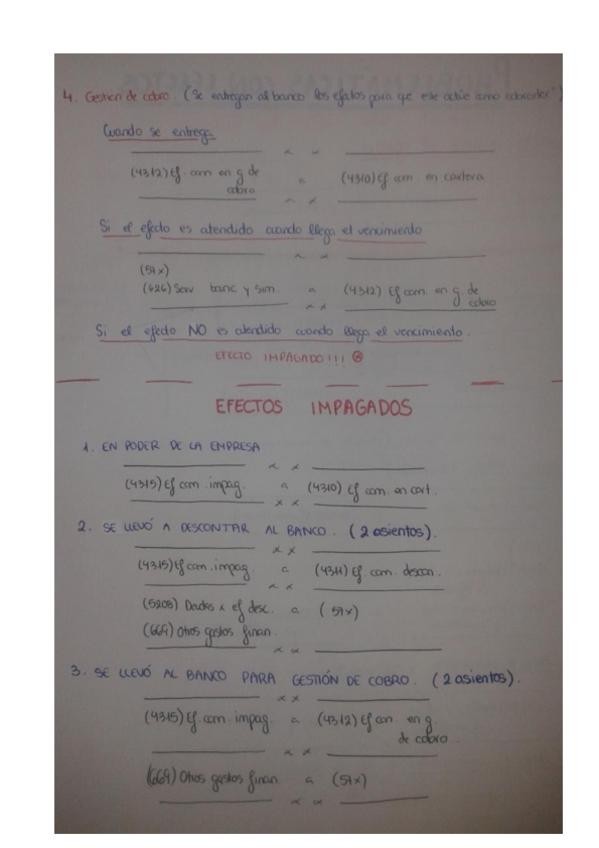 4. Gestion de cobro. (Se entregan al banco los efectos para que este actúe como "cobrador")
Cuando se entrega
(4312) Ef. com en g de cobro a (4310) Ef com. en cartera
Si el efecto es atendido cuando llega el vencimiento
(57x)
(626) Serv banc y sim. a (4312) Ef com. en g. de cobro
Si el efecto NO es atendido cuando llega el vencimiento.
EFECTO IMPAGADO!!!
EFECTOS IMPAGADOS
1. EN PODER DE LA EMPRESA
(4315) Ef com. impag. a (4310) Ef com. en cart.
2. SE LLEVÓ A DESCONTAR AL BANCO. (2 asientos).
(4315) Ef com. impag. a (4311) Ef. com. descon.
(5208) Deudas x ef desc. a (57x)
(669) Otros gastos finan.
3. SE LLEVÓ AL BANCO PARA GESTIÓN DE COBRO. (2 asientos).
(4315) Ef. com. impag. a (4312) Ef com. en g. de cobro.
(669) Otros gastos finan a (57x)